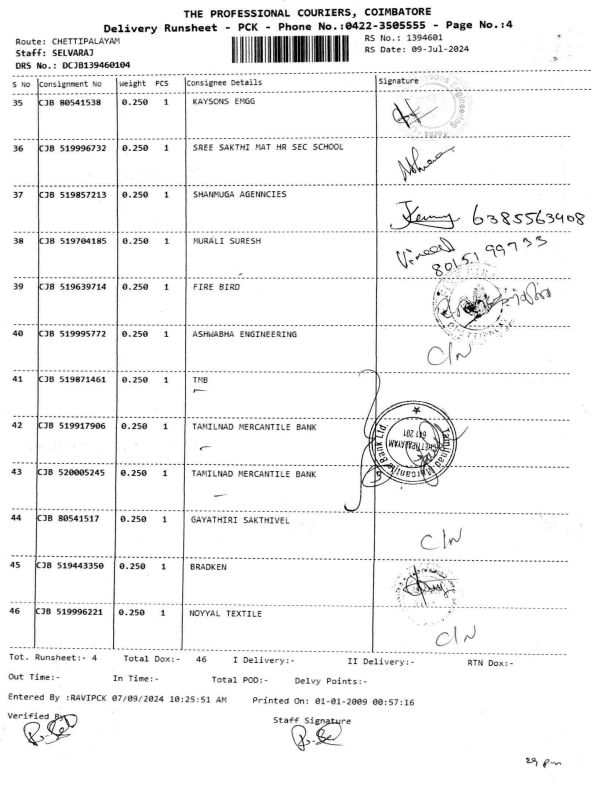 THE PROFESSIONAL COURIERS, COIMBATORE
Delivery Runsheet - PCK - Phone No.:0422-3505555 - Page No.:4
Route: CHETTIPALAYAM RS No.: 1394601
Staff: SELVARAJ RS Date: 09-Jul-2024
DRS No.: DCJB139460104
S No Consignment No Weight PCS Consignee Details Signature
35 CJB 80541538 0.250 1 KAYSONS EMGG
36 CJB 519996732 0.250 1 SREE SAKTHI MAT HR SEC SCHOOL
37 CJB 519857213 0.250 1 SHANMUGA AGENNCIES
6385563408
38 CJB 519704185 0.250 1 MURALI SURESH
80151 99733
39 CJB 519639714 0.250 1 FIRE BIRD
40 CJB 519995772 0.250 1 ASHWABHA ENGINEERING
C/N
41 CJB 519871461 0.250 1 TMB
42 CJB 519917906 0.250 1 TAMILNAD MERCANTILE BANK
Tamilnad Mercantile Bank Ltd.
CHETTIPALAYAM
641 201
43 CJB 520005245 0.250 1 TAMILNAD MERCANTILE BANK
44 CJB 80541517 0.250 1 GAYATHIRI SAKTHIVEL
C/N
45 CJB 519443350 0.250 1 BRADKEN
46 CJB 519996221 0.250 1 NOYYAL TEXTILE
C/N
Tot. Runsheet:- 4 Total Dox:- 46 I Delivery:- II Delivery:- RTN Dox:-
Out Time:- In Time:- Total POD:- Delvy Points:-
Entered By :RAVIPCK 07/09/2024 10:25:51 AM Printed On: 01-01-2009 00:57:16
Verified By Staff Signature